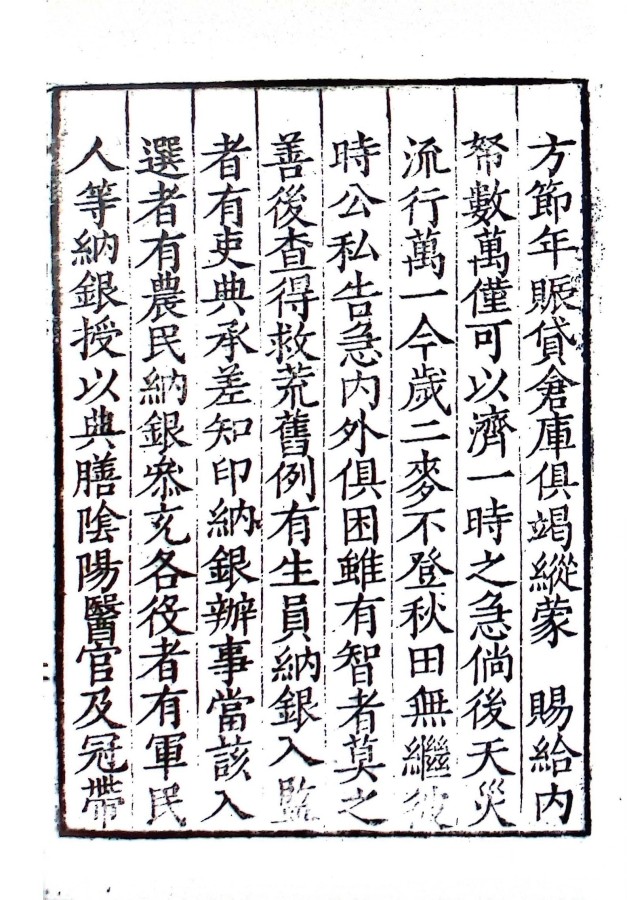 方節年賑貸倉庫俱竭縱蒙　賜給內
帑數萬僅可以濟一時之急倘後天災
流行萬一今歲二麥不登秋田無繼彼
時公私告急內外俱困雖有智者莫之
善後查得救荒舊例有生員納銀入監
者有吏典承差知印納銀辦事當該入
選者有農民納銀叅充各役者有軍民
人等納銀授以典膳陰陽醫官及冠帶